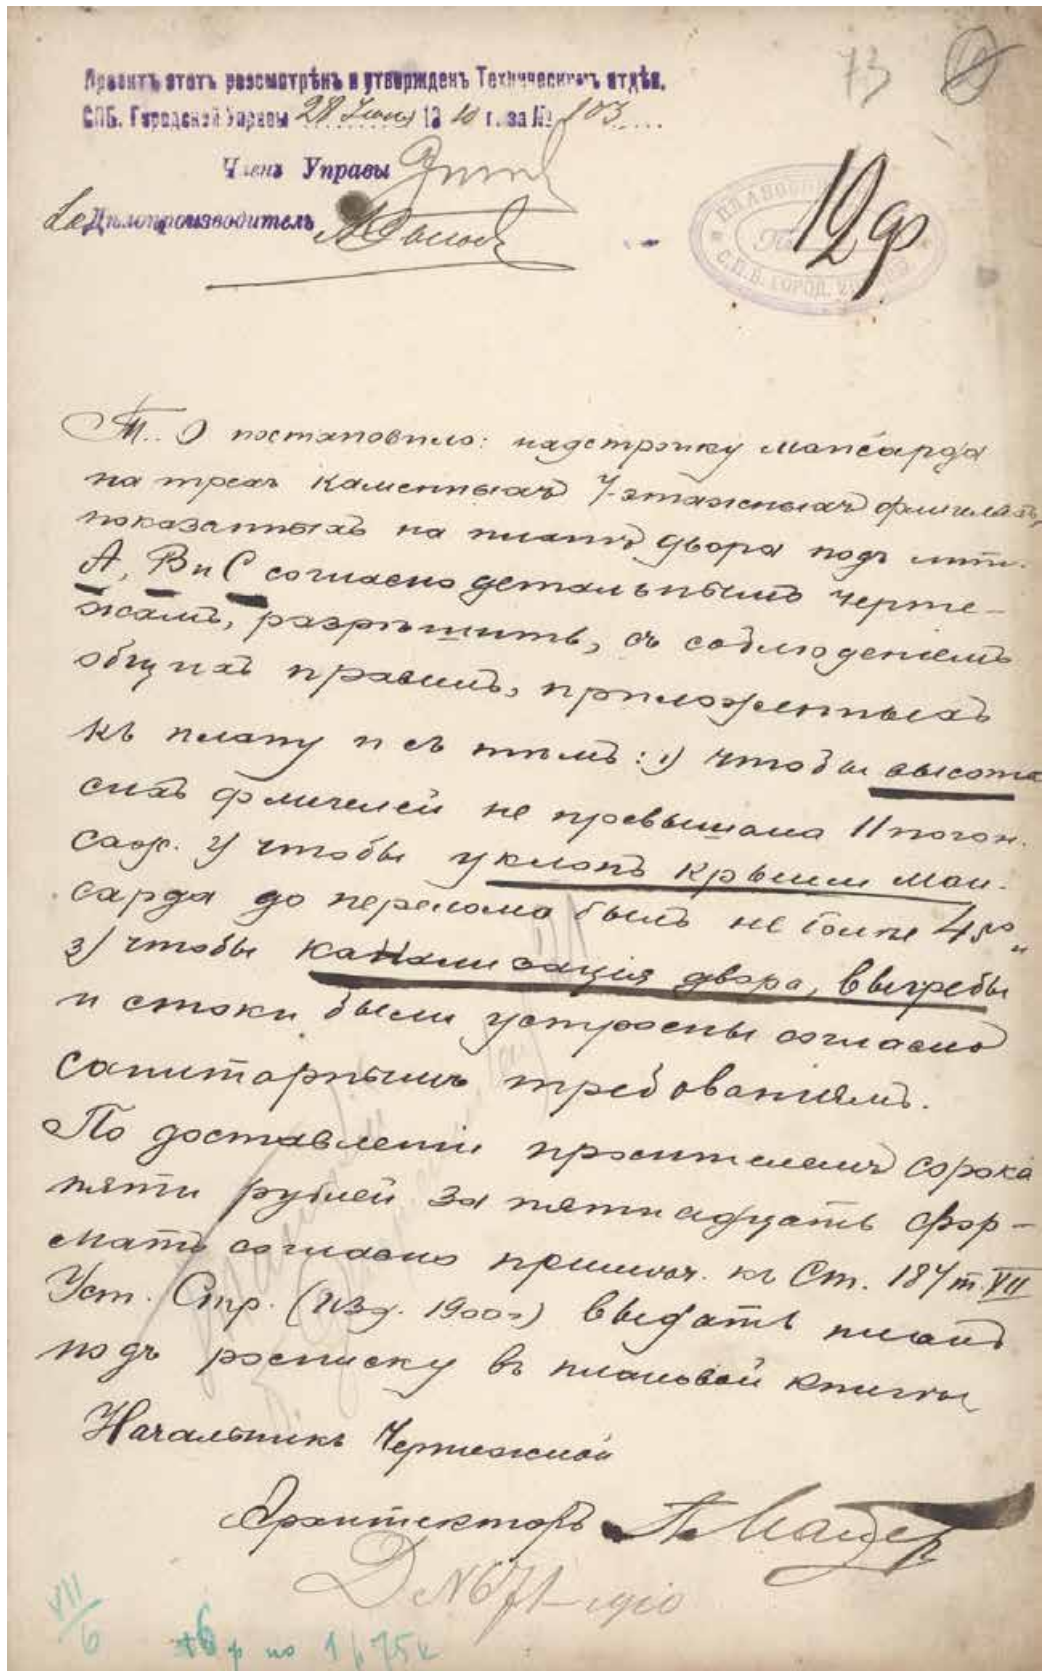 73
Проектъ этотъ разсмотрѣнъ и утвержденъ Техническимъ отдѣл.
СПБ. Городской Управы 28 Іюня 1910 г. за № 103
Членъ Управы
Дѣлопроизводитель
ПЛАНОВ
С.П.Б. ГОРОД.
12 ф
Т. О постановило: надстройку мансарда
на трехъ каменныхъ 7-этажныхъ флигеляхъ,
показанныхъ на планѣ двора подъ лит.
А, В и С согласно детальнымъ черте-
жамъ, разрѣшить, съ соблюденіемъ
общихъ правилъ, приложенныхъ
къ плану и съ тѣмъ: 1) чтобы высота
сихъ флигелей не превышала 11 погон.
саж. 2) чтобы уклонъ крыши ман-
сарда до перелома былъ не болѣе 45° и
3) чтобы канализація двора, выгребы
и стоки были устроены согласно
санитарнымъ требованіямъ.
По доставленіи просителемъ сорока
пяти рублей за пятнадцать фор-
матъ согласно примѣч. къ Ст. 187 т. XII
Уст. Стр. (изд. 1900 г.) выдать планъ
подъ росписку въ плановой книгѣ
Начальникъ Чертежной
Архитекторъ
D N 671 - 1910
VII/6
6 ф по 1 р 75 к